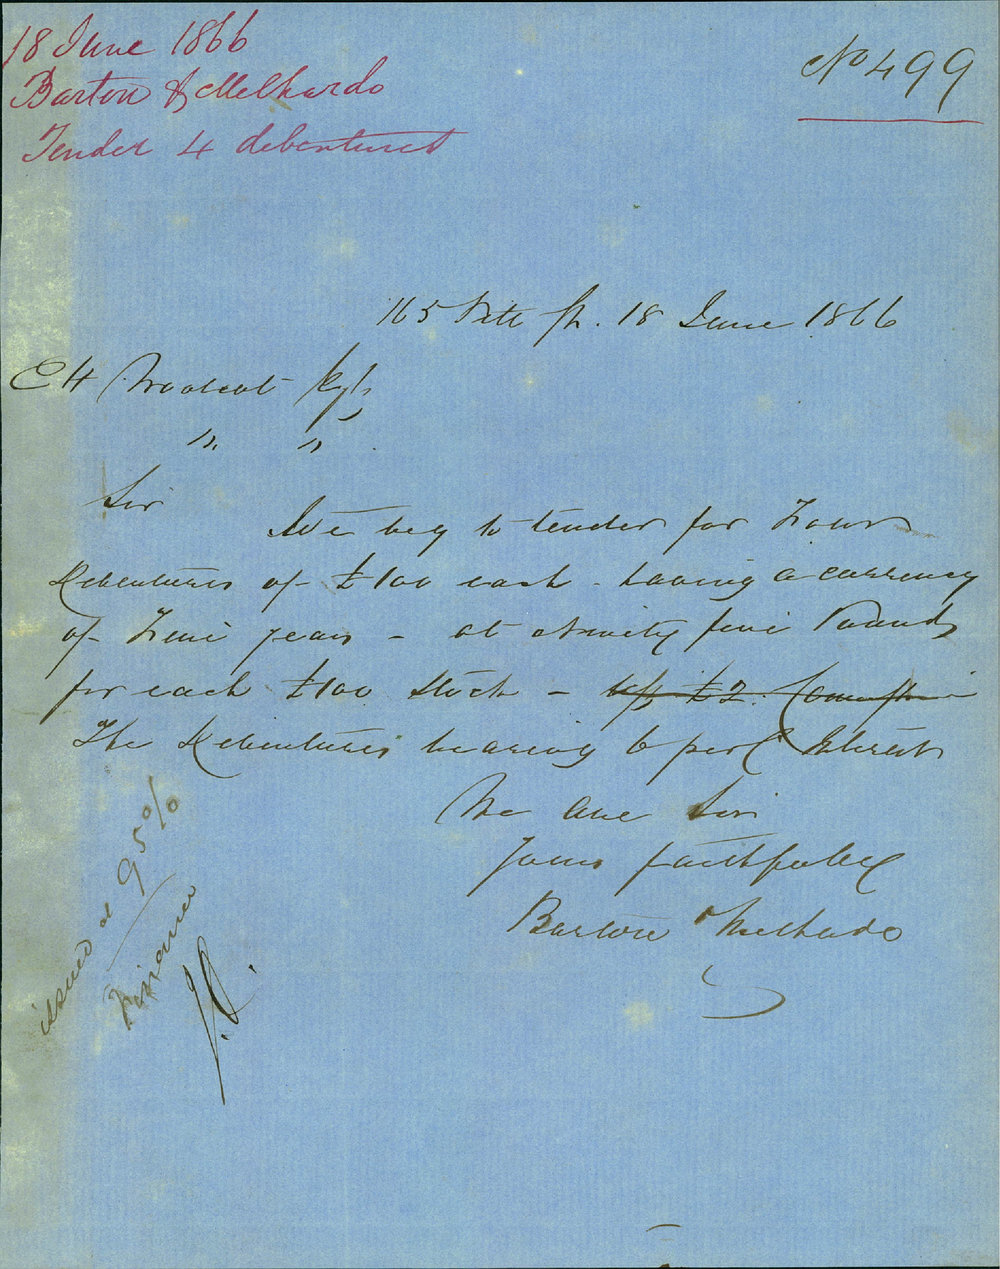 18 June 1866
Barton & Melhado
Tender 4 debentures
No 499
165 Pitt St. 18 June 1866
E H Woolcott Esq
" "
Sir
We beg to tender for Four
Debentures of £100 each - having a currency
of Five years - at Ninety five Pounds
for each £100 Stock - less £2. Commission
The Debentures bearing 6 per C Interest
We are Sir
Yours faithfully
Barton Melhado
issued at 95%
Finance